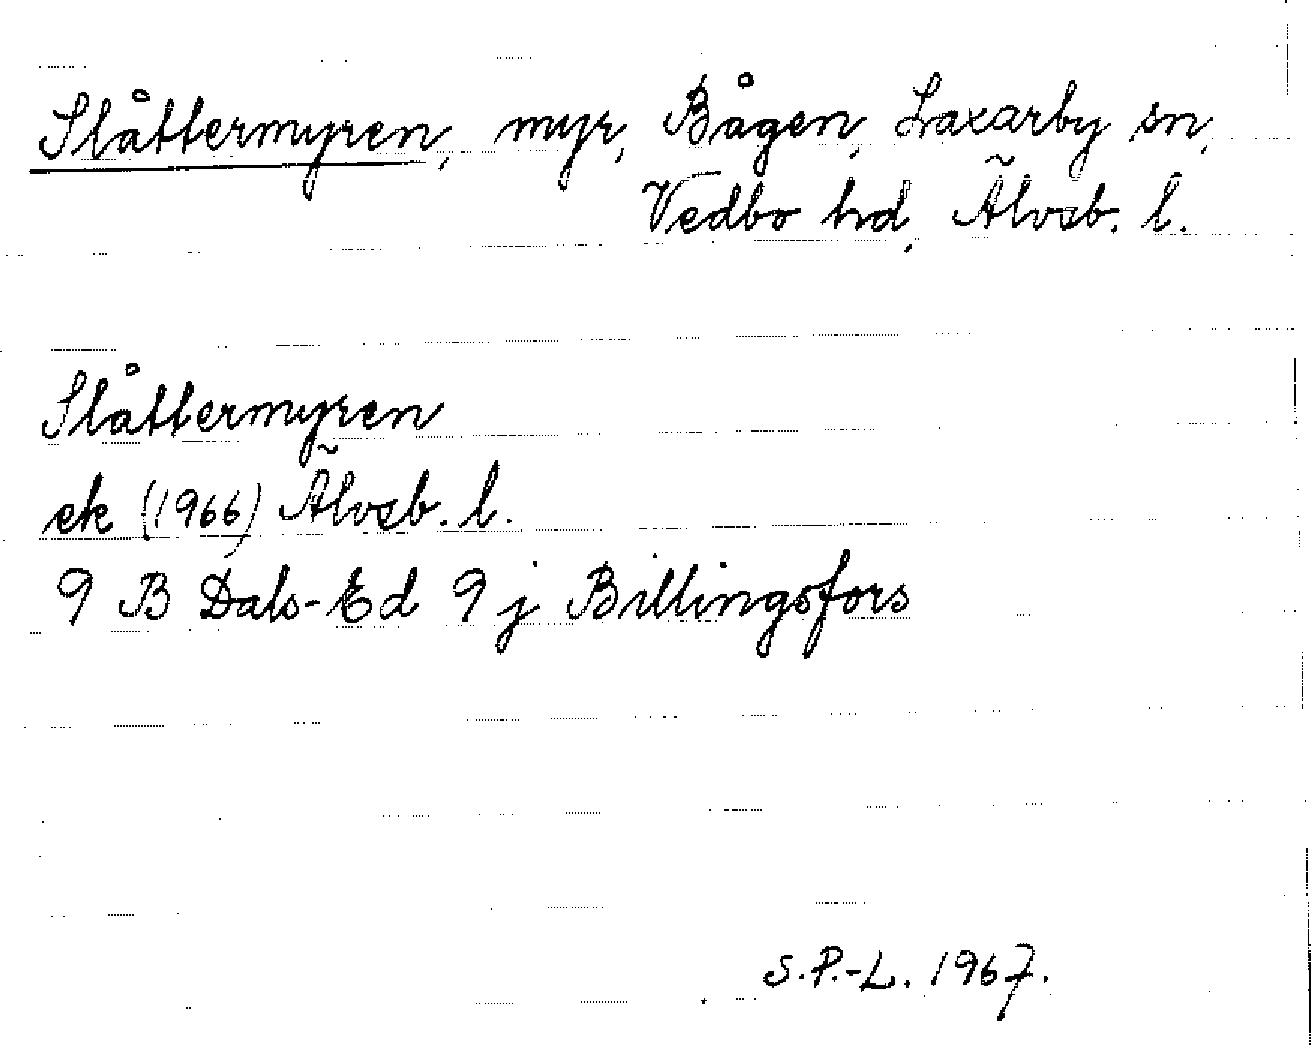 Slåttermyren, myr, Bågen, Laxarby sn,
Vedbo hd, Älvsb. l.
Slåttermyren
ek (1966) Älvsb. l.
9 B Dals-Ed 9 j Billingsfors
S.P.-L. 1967.